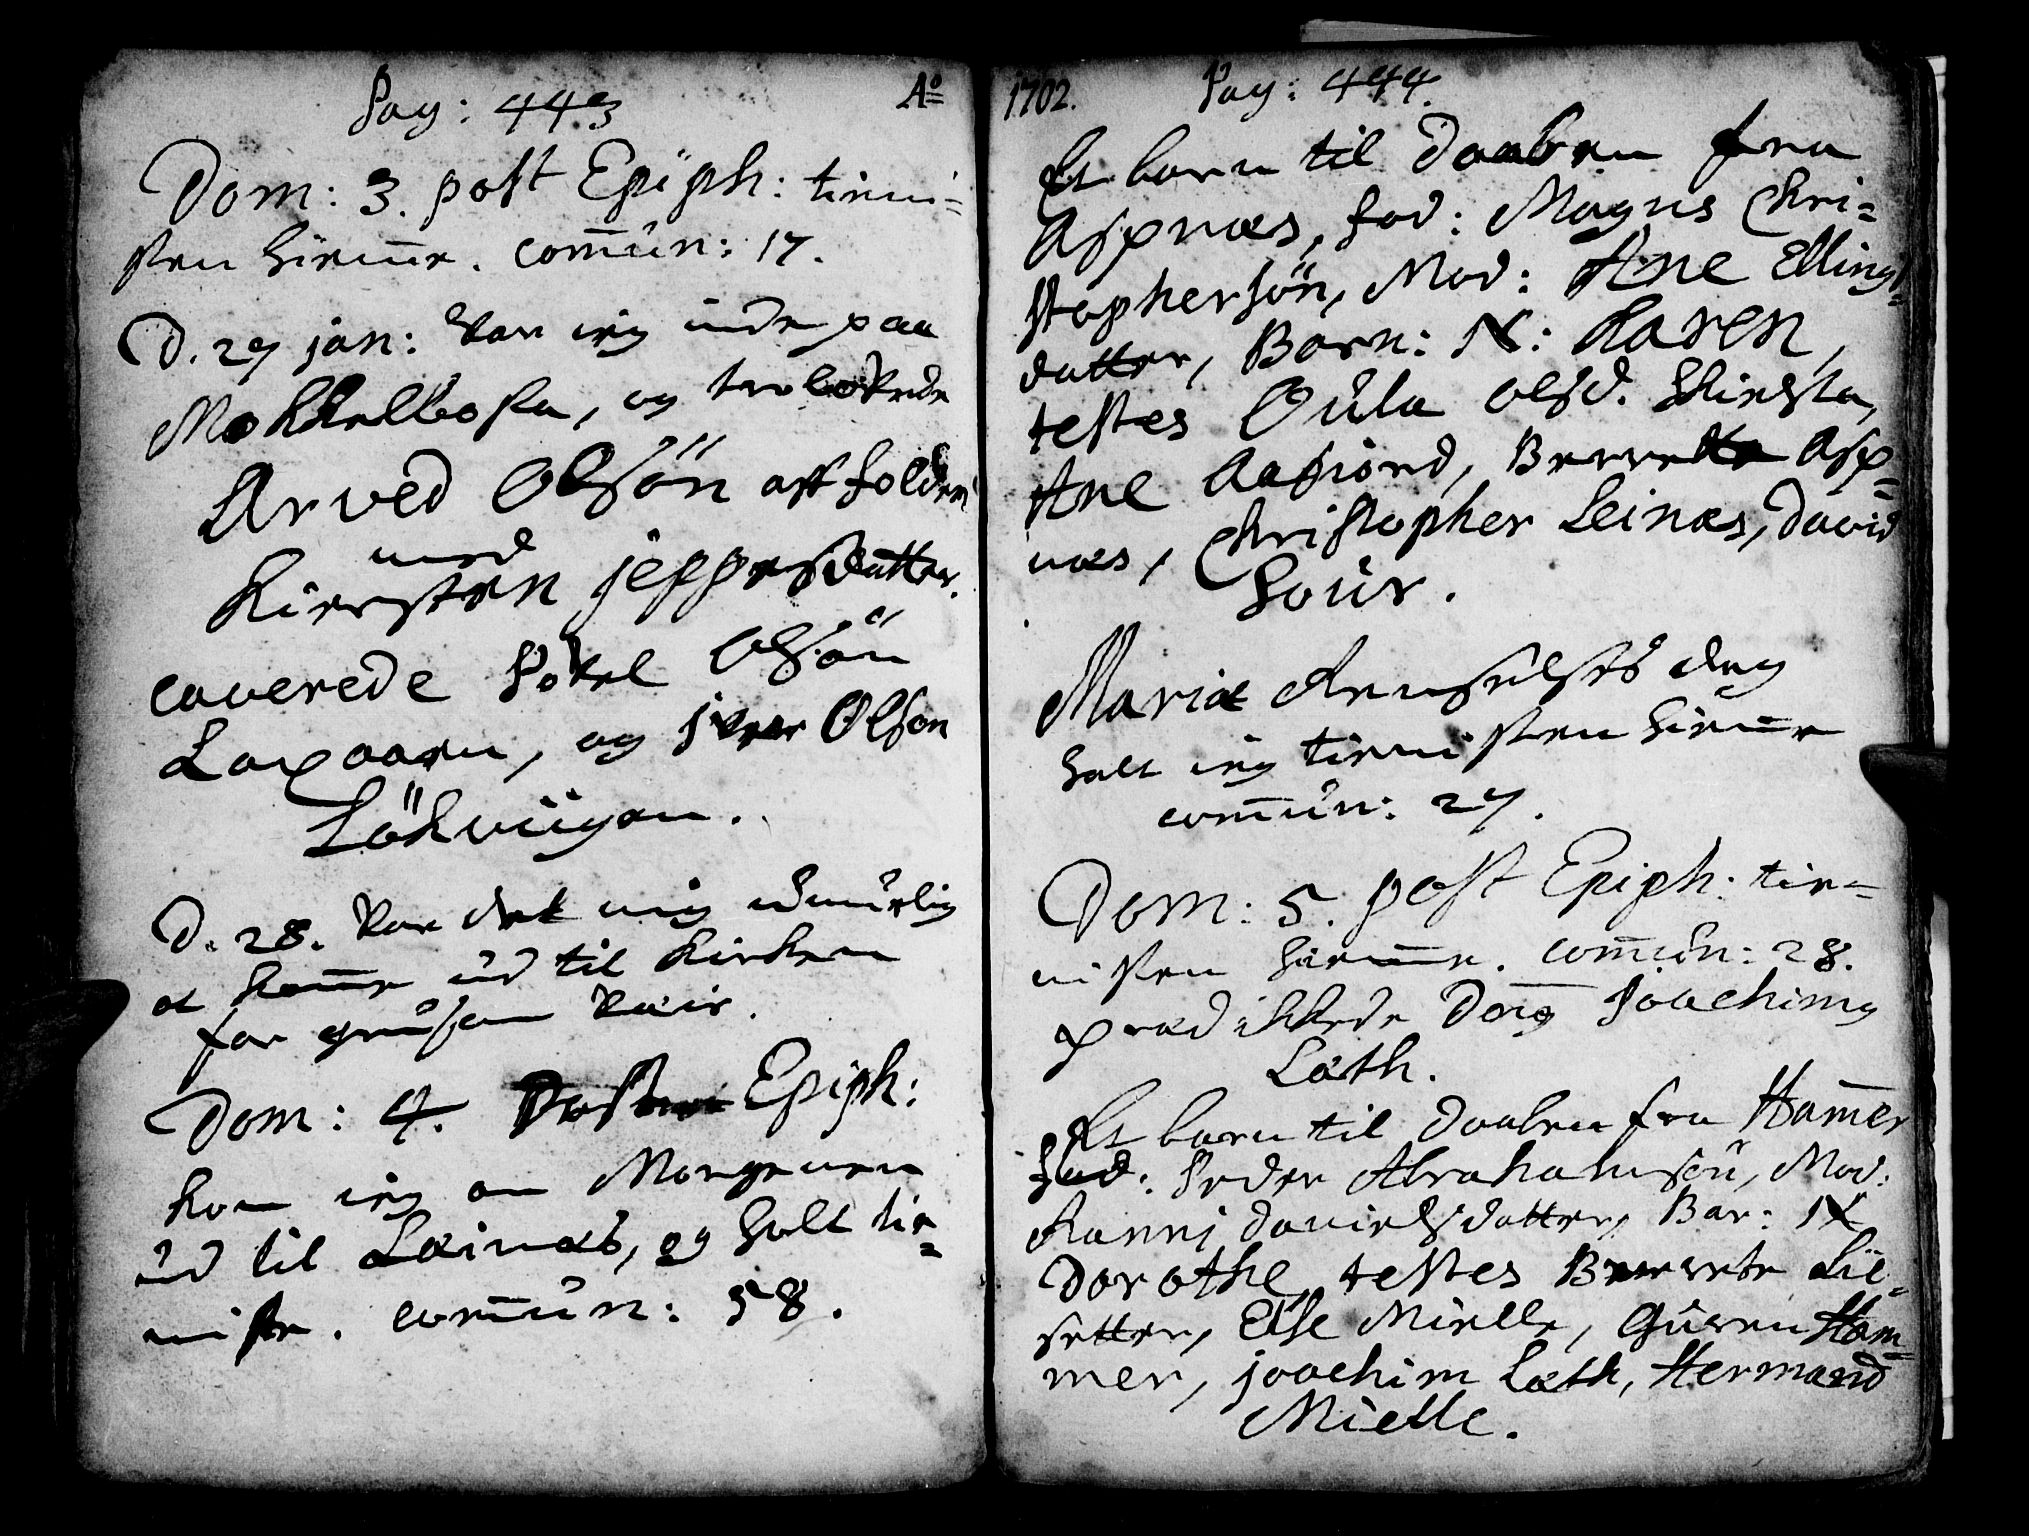 Pag: 443 Aº
Dom: 3. post Epiph: tieni=
sten hiemme. com̄un: 17.
D. 27 jan: var ieg inde paa
Mokkelbosta, og trolovede
Arved Olsön aff folden
med
Kiersten jeppesdatter.
caverede Povel Olsön
Laxaaen, og jver Olson
Lökviigen.
D. 28. var det mig umuelig
at kom̄e ud til Kirken
for grusom vær.
Dom: 4. Post Epiph:
kom ieg om Morgenen
ud til Leines, og holt tie=
niste. com̄un: 58.
1702. Pag: 444.
Et barn til Daaben fra
Aspnæs, fad: Magns Chri=
stophersön, Mod: Ane Elling=
datter, Barn: N: Karen,
testes Oula olsd. Skielsta,
Ane Aafiord, Berrette Asp=
næs, Christopher Leinæs, David
Hour.
Mariæ Renselses dag
holt ieg tienisten hiem̄e
com̄un: 27.
Dom: 5. post Epiph: tie=
nisten hiem̄e. com̄un: 28.
prædikkede Dom̄ Joachimg
Læth.
Et barn til Daaben fra Ham̄er
Fad: Peder Abrahamsön, Mod:
Karrnj danielsdatter, Bar: N
Dorothe, testes Berrete Lie=
setter, Else Mielle, Guren Ham=
mer, joachim Læth, Hermand
Mielle.